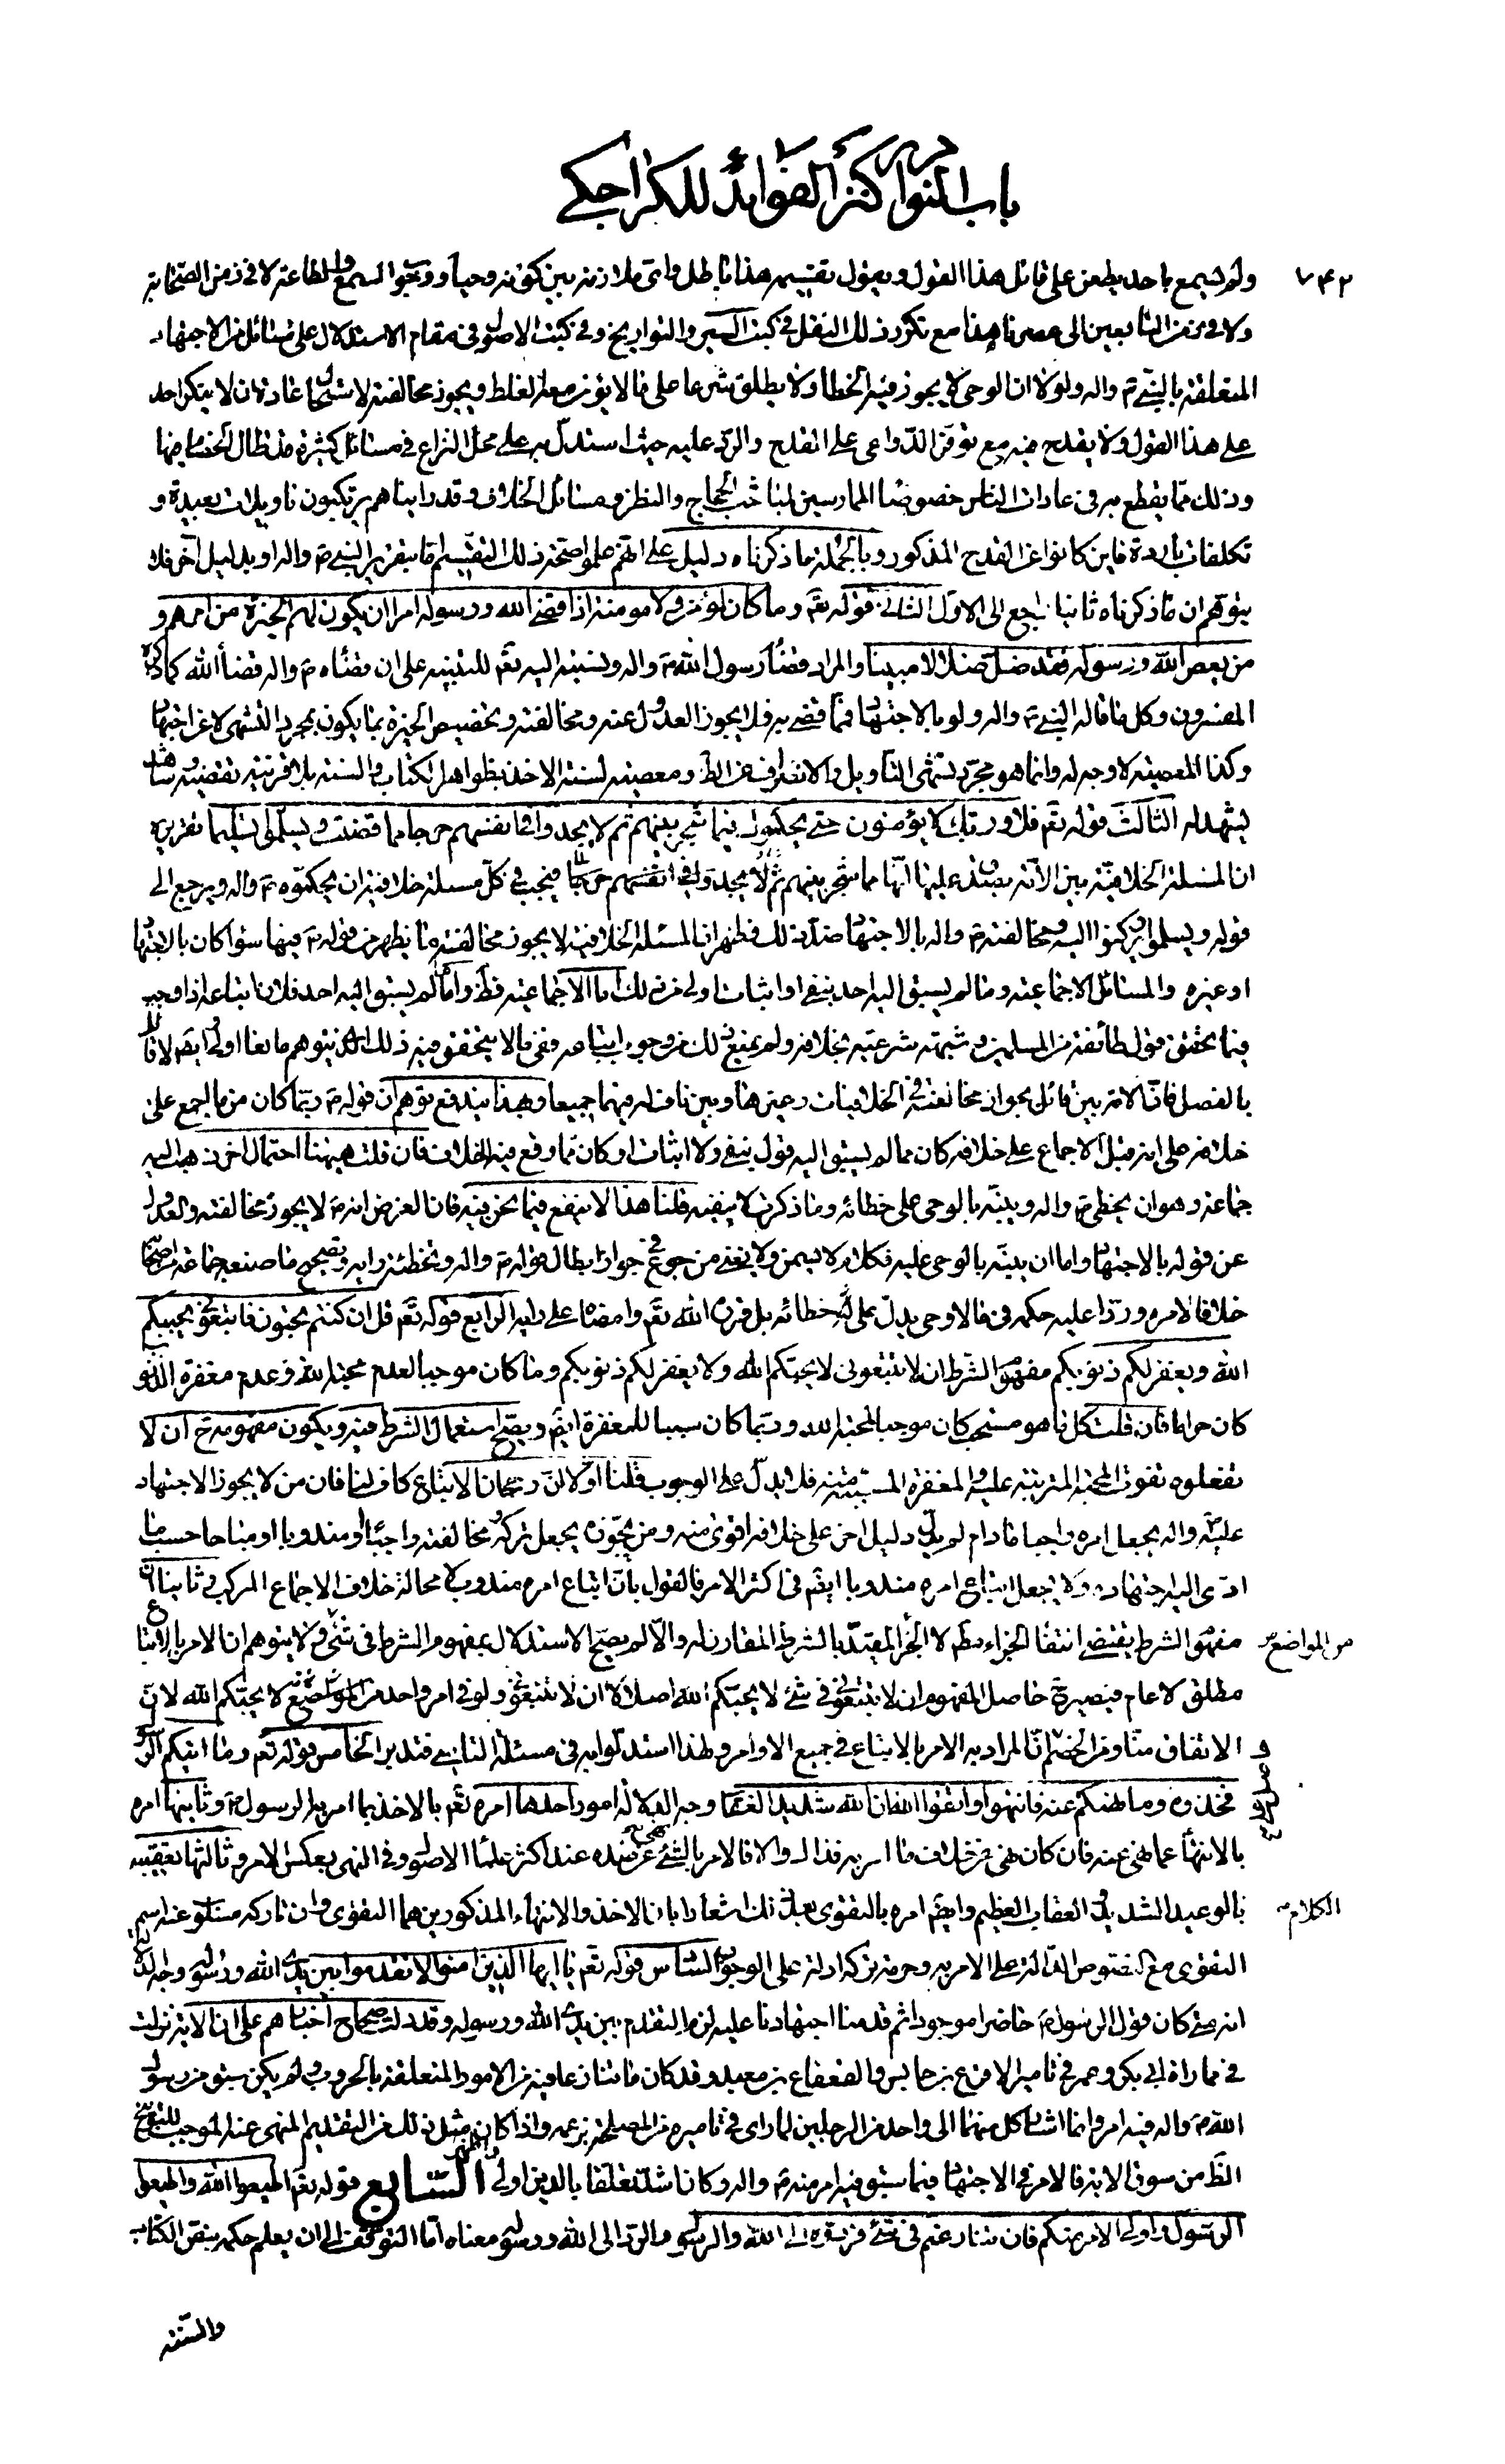 باب النوادر كنز الفوائد للكراجكي
٧٤٢
ولم يسمع باحد يطعن على قائل هذا القول ويقول تقسيمه هذا باطل واى ملازمة بين كونه وحيا ووجوب السمع والطاعة لا فى زمن الصحابة
ولا فى زمن التابعين الى عصرنا هذا مع تكرر ذلك النقل فى كتب السير والتواريخ وفى كتب الاصول فى مقام الاستدلال على مسائل من الاجتهاد
المتعلقة بالنبى ص واله ولولا ان الوحى لا يجوز فيه الخطا ولا يطلق شرعا على ما لا يؤمن معه الغلط ويجوز مخالفته لاستحال عادة ان لا ينكر احد
على هذا القول ولا يقدح فيه مع توفر الدواعى على القدح والرد عليه حيث استدل به على محل النزاع فى مسائل كثيرة قد طال الخصام فيها
وذلك مما يقطع به فى عادات الناس خصوصا الممارسين لمباحث الحجاج والنظر فى مسائل الخلاف وقد راينا هم يرتكبون تاويلات بعيدة و
تكلفات باردة فاين كانوا عن القدح المذكور وبالجملة ما ذكرناه دليل على انهم علموا صحة ذلك التقسيم اما بتقرير النبى ص واله او بدليل آخر فلا
يتوهم ان ما ذكرناه ثانيا راجع الى الاول الثانى قوله تعم وما كان لمؤمن ولا مومنة اذا قضى الله ورسوله امرا ان يكون لهم الخيرة من امرهم و
من يعص الله ورسوله فقد ضل ضلالا مبينا والمراد قضاء رسول الله ص واله ونسبته اليه تعم للتنبيه على ان قضاءه ص واله قضاء الله كما ذكره
المفسرون وكل ما قاله النبى ص واله ولو بالاجتهاد مما قضى به فلا يجوز العدول عنه ومخالفته وتخصيص الخيرة بما يكون بمجرد التشهى لا عن اجتهاد
وكذا المعصية لا وجه له وانما هو مجرد تشهى التاويل والانصراف عن الظ ومعصية لسنة الاخذ بظواهر الكتاب والسنة بلا قرينة تقتضيه وشاهد
يشهد له الثالث قوله تعم فلا وربك لا يؤمنون حتى يحكموك فيما شجر بينهم ثم لا يجدوا فى انفسهم حرجا مما قضيت ويسلموا تسليما تقريره
ان المسئلة الخلافية بين الامة يصدق عليها انها مما شجر بينهم ثم لا يجدوا فى انفسهم حرجا فيجب فى كل مسئلة خلافية ان يحكموه ص واله ويرجع الى
قوله ويسلموا ويركنوا اليه ومخالفته ص واله بالاجتهاد ضد ذلك فظهر ان المسئلة الخلافية لا يجوز مخالفة ما يظهر من قوله ص فيها سواء كان بالاجتهاد
او غيره والمسائل الاجماعية وما لم يسبق اليه احد بنفى او اثبات اولى من ذلك اما الاجماعية فظ واما ما لم يسبق اليه احد فلان اتباعه اذا وجب
فيما تحقق قول طائفة من المسلمين و شبهة شرعية بخلافه ولم يمنع ذلك من وجوب اتباعه ففى ما لا يتحقق فيه ذلك الذى يتوهم مانعا اولى ايضم لا قائل
بالفصل فان الامة بين قائل بجواز مخالفته فى الخلافيات وغيرها وبين ناف له فيهما جميعا وبهذا يندفع توهم ان قوله ص ربما كان من ما اجمع على
خلافه على انه قبل الاجماع على خلافه كان مما لم يسبق اليه قول بنفى ولا اثبات او كان مما وقع فيه الخلاف فان قلت هيهنا احتمال اخر ذهب اليه
جماعة وهو ان يخطى ص واله وينبه بالوحى على خطائه وما ذكرت لا ينفيه قلنا هذا لا ينفع فيما نحن فيه فان الغرض انه ص لا يجوز مخالفته والعدول
عن قوله بالاجتهاد واما ان ينبه بالوحى عليه فكلام لا يسمن ولا يغنى من جوع فى جواز ابطال قوله ص واله وتخطئة رايه وتصحيح ما صنعه جماعة من اصحابه
خلافا لامره وردا عليه حكمه فى ما لا وحى يدل على خطائه بل قرره الله تعم وامضاه على رايه الرابع قوله تعم قل ان كنتم تحبون فاتبعونى يحببكم
الله ويغفر لكم ذنوبكم مفهوم الشرط ان لا تتبعونى لا يحبكم الله ولا يغفر لكم ذنوبكم وما كان موجبا لعدم محبة الله وعدم مغفرة الذنوب
كان حراما فان قلت كل ما هو مستحب كان موجبا لمحبة الله وربما كان سببا للمغفرة ايضم ويصح استعمال الشرط فيه ويكون مفهومه ح ان لا
تفعلوه تفوت المحبة المترتبة عليه والمغفرة المسببة منه فلا يدل على الوجوب قلنا اولا ان رجحان الاتباع كاف لنا فان من لا يجوز الاجتهاد
عليه واله يجعل امره واجبا ما دام لم يدل دليل اخر على خلافه اقوى منه ومن يجوزه يجعل تركه مخالفته واجبا او مندوبا او مباحا حسب ما
ادى اليه اجتهاده ولا يجعل اتباع امره مندوبا ايضم فى اكثر الامر فالقول بان اتباع امره مندوب لا محالة خلاف الاجماع المركب وثانيا ان
مفهوم الشرط يقتضى انتفاء الجزاء مطم لا الجزاء المقيد بالشرط المقارن له والا لم يصح الاستدلال بمفهوم الشرط فى شئ ولا يتوهم ان الامر بالاتباع
من المواضع
مطلق لا عام فيصير حاصل المفهوم ان لا تتبعونى فى شئ لا يحبكم الله اصلا لا ان لا تتبعونى ولو فى امر واحد من المواضع لا يحبكم الله لان
الاتفاق منا ومن الخصم ان المراد به الامر بالاتباع فى جميع الاوامر ولهذا استدلوا به فى مسئلة التاسى فتدبر الخامس قوله تعم وما اتيكم الرسول
فخذوه وما نهيكم عنه فانتهوا واتقوا الله ان الله شديد العقاب وجه الدلالة امور احدها امره تعم بالاخذ بما امر به الرسول ص وثانيها امره
بالانتهاء عما نهى عنه فان كان نهى عن خلاف ما امر به فذاك والا فالامر بالشئ نهى عن ضده عند اكثر علماء الاصول وفى النهى بعكس الامر وثالثها تعقيبه
الكلام
بالوعيد الشديد والعقاب العظيم وايضم امره بالتقوى بعد ذلك اشعارا بان الاخذ والانتهاء المذكورين هما التقوى وان تاركه مسلوب عنه اسم
التقوى مع النصوص الدالة على الامر به وحرمة تركه ادلة على الوجوب السادس قوله تعم يا ايها الذين امنوا لا تقدموا بين يدى الله ورسوله وجه الدلالة
انه متى كان قول الرسول ص حاضرا موجودا ثم قدمنا اجتهادنا عليه لزم التقدم بين يدى الله ورسوله وقد دلت صحاح اخبارهم على ان الاية نزلت
فى مماراة ابى بكر وعمر فى تامير الاقرع بن حابس والقعقاع بن معبد وقد كان ما تنازعا فيه من الامور المتعلقة بالحروب ولم يكن سبق من رسول
الله ص واله فيه امر وانما اشار كل منهما الى واحد من الرجلين لما راى فى تاميره من المصلحة بزعمه واذا كان مثل ذلك من التقديم المنهى عنه الموجب للتوبيخ
الظ من سوق الاية فالامر فى الاجتهاد فيما سبق فيه امر منه ص واله وكان اشد تعلقا بالدين اولى واظهر السابع قوله تعم اطيعوا الله واطيعوا
الرسول واولى الامر منكم فان تنازعتم فى شئ فردوه الى الله والرسول والرد الى الله ورسوله معناه اما التوقف الى ان يعلم حكمه بنص الكتاب
والسنة